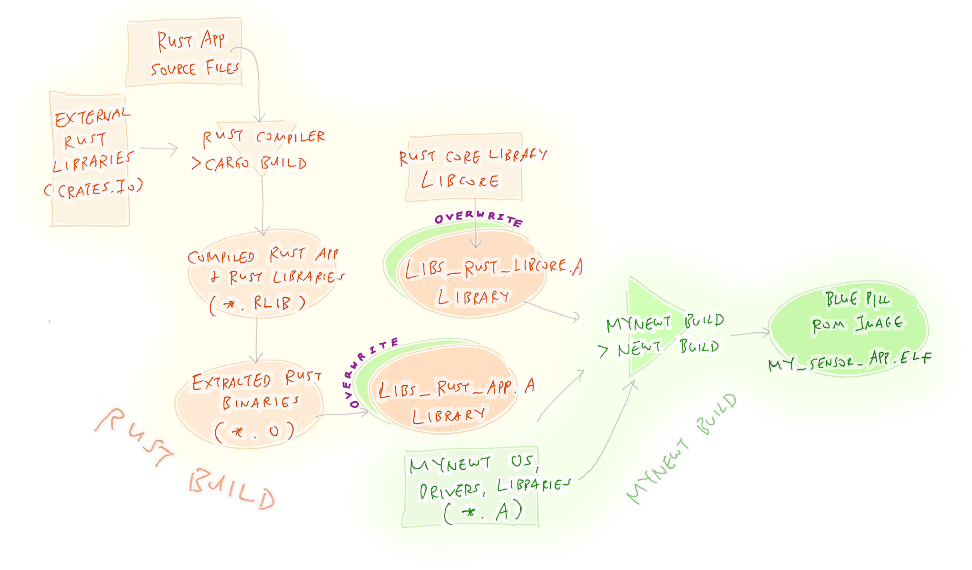 RUST APP
SOURCE FILES
EXTERNAL
RUST
LIBRARIES
(CRATES.IO)
RUST COMPILER
>CARGO BUILD
RUST CORE LIBRARY
LIBCORE
OVERWRITE
COMPILED RUST APP
& RUST LIBRARIES
(*.RLIB)
LIBS_RUST_LIBCORE.A
LIBRARY
MYNEWT BUILD
> NEWT BUILD
BLUE PILL
ROM IMAGE
MY_SENSOR_APP.ELF
OVERWRITE
EXTRACTED RUST
BINARIES
(*.O)
LIBS_RUST_APP.A
LIBRARY
RUST BUILD
MYNEWT OS,
DRIVERS, LIBRARIES
(*.A)
MYNEWT BUILD